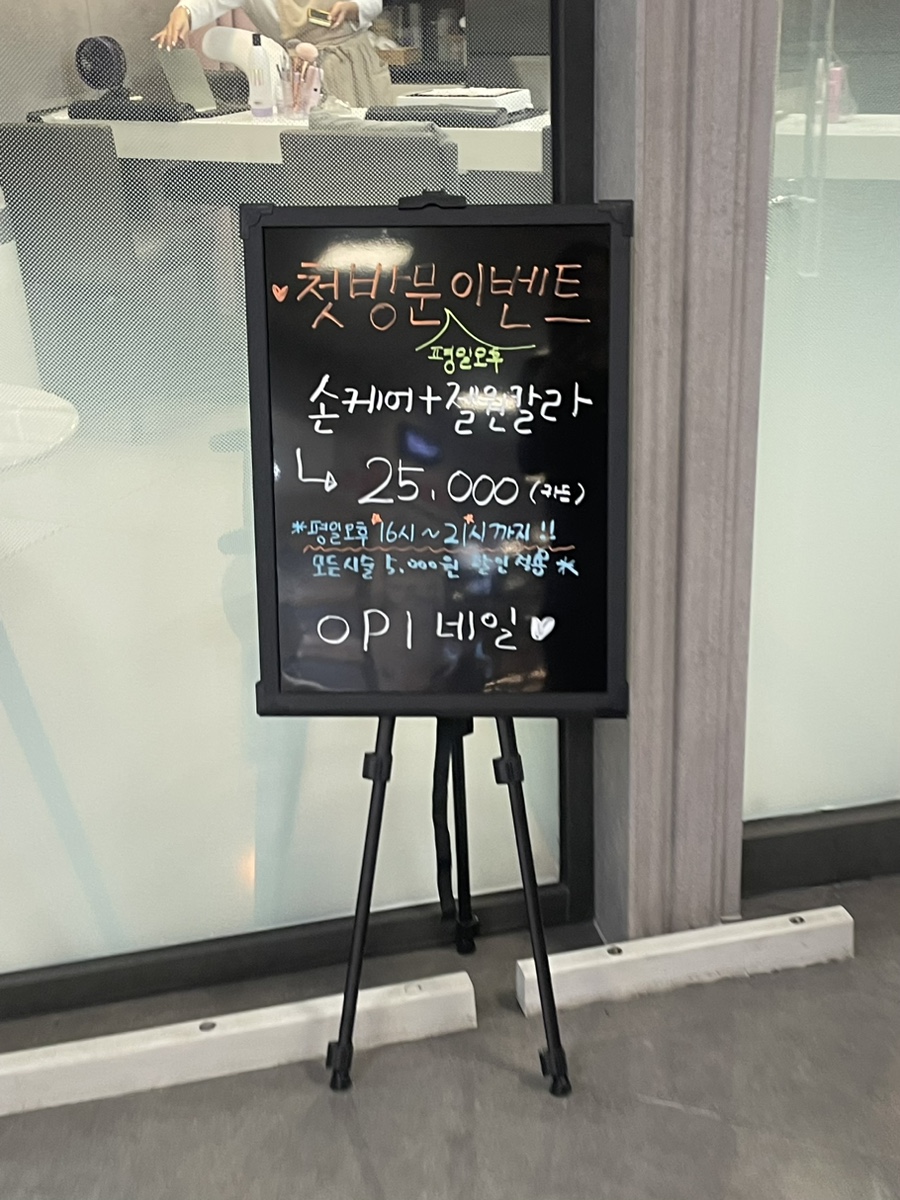 첫방문 이벤트
평일오후
손케어+젤원칼라
25,000 (카드)
*평일오후 16시~21시까지!!
모든시술 5,000원 할인적용*
OPI 네일